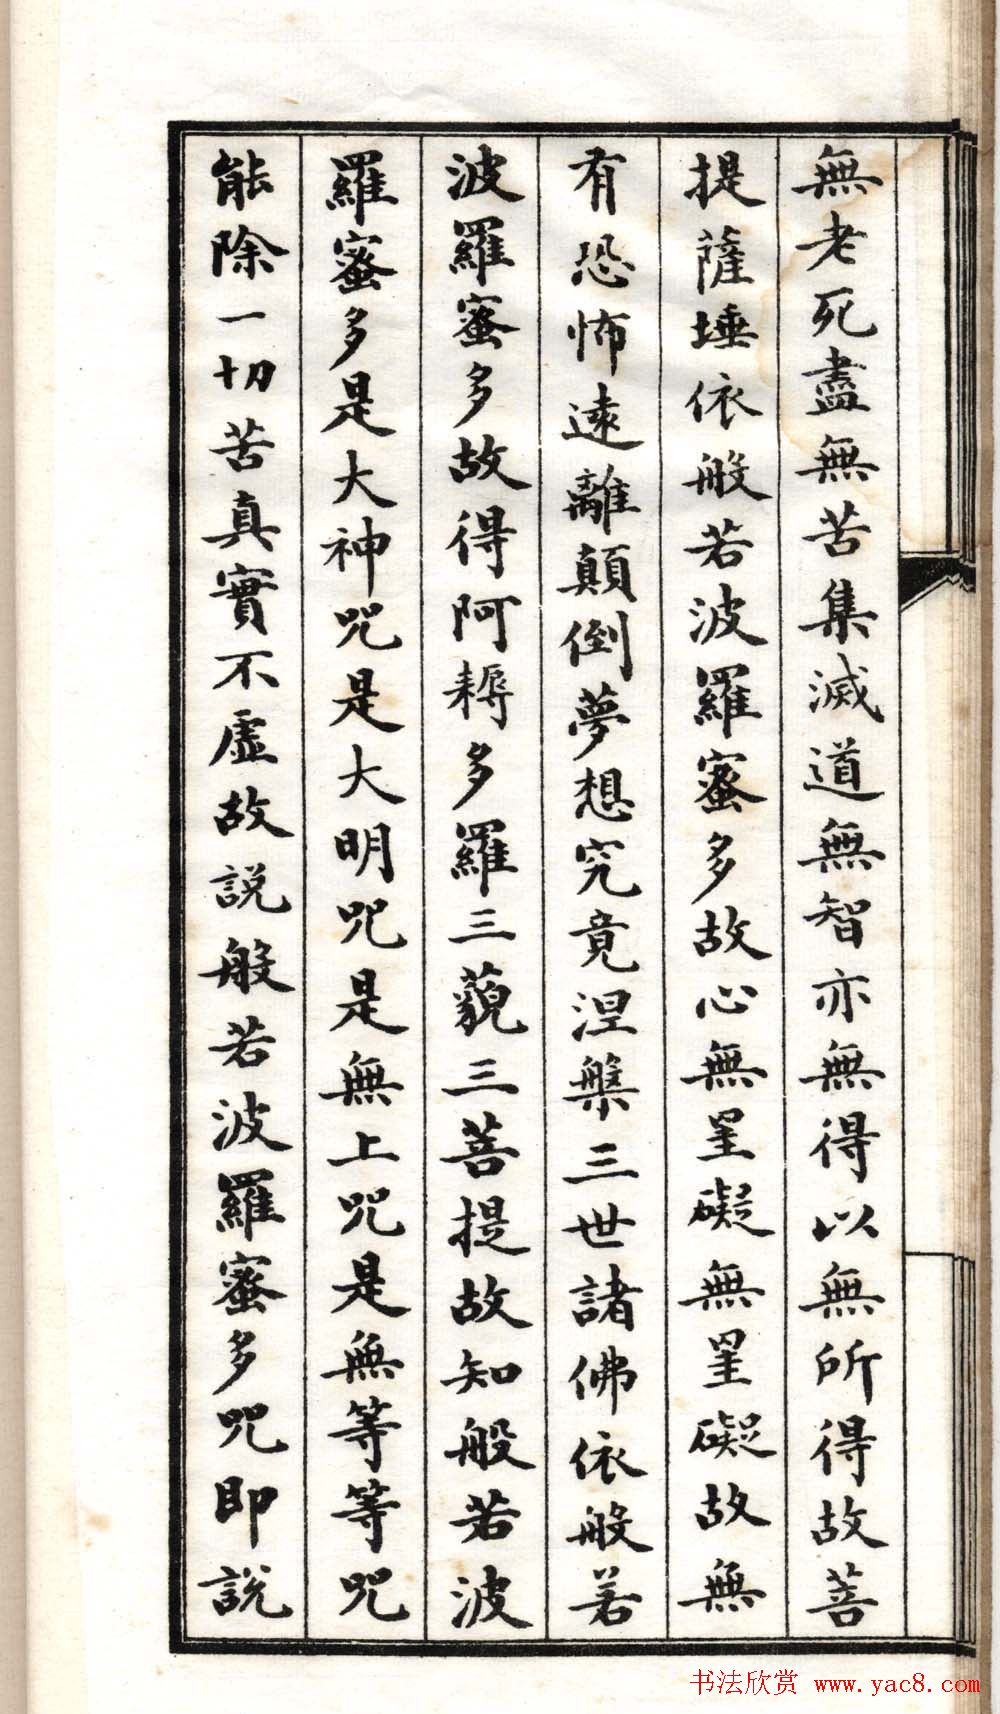 無老死盡無苦集滅道無智亦無得以無所得故菩
提薩埵依般若波羅蜜多故心無罣礙無罣礙故無
有恐怖遠離顛倒夢想究竟涅槃三世諸佛依般若
波羅蜜多故得阿耨多羅三藐三菩提故知般若波
羅蜜多是大神咒是大明咒是無上咒是無等等咒
能除一切苦真實不虛故說般若波羅蜜多咒即說
书法欣赏 www.yac8.com